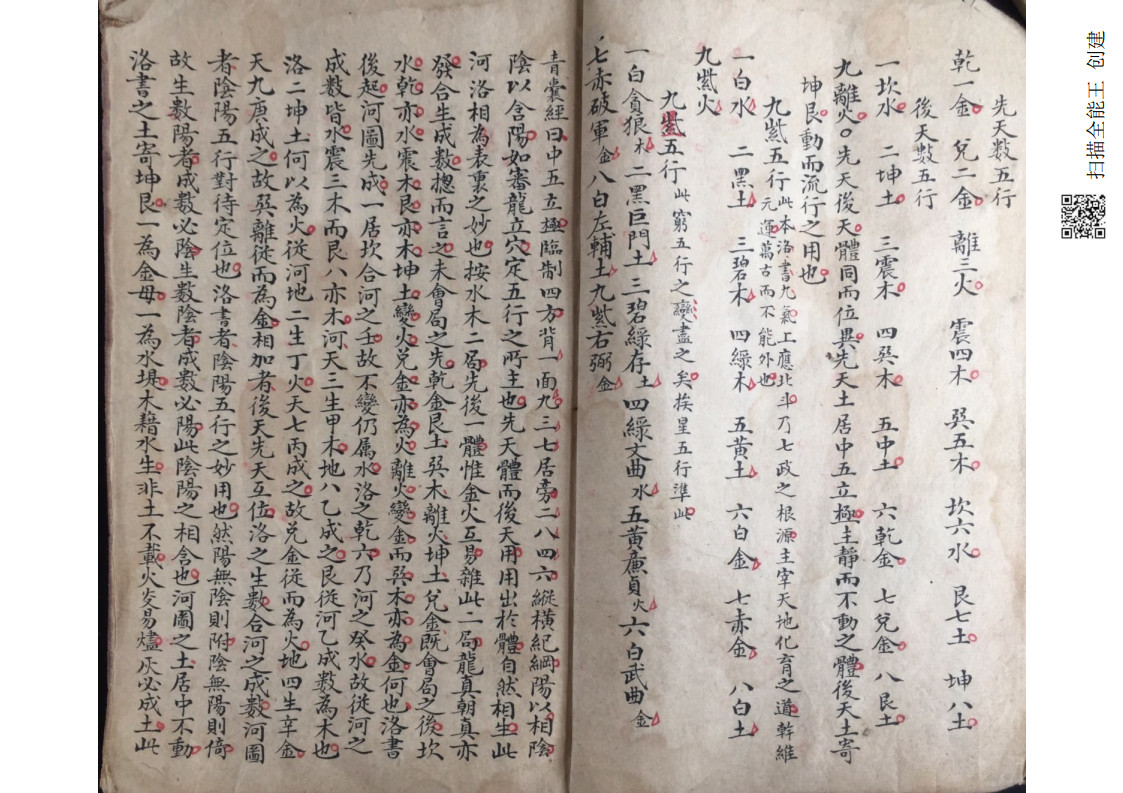 先天數五行
乾一金 兌二金 離三火 震四木 巽五木 坎六水 艮七土 坤八土
後天數五行
一坎水 二坤土 三震木 四巽木 五中土 六乾金 七兌金 八艮土
九離火〇先天後天體同而位異先天土居中五立極主靜而不動之體後天土寄
坤艮動而流行之用也
九紫五行此本洛書九氣上應北斗乃七政之根源主宰天地化育之道幹維
元運萬古而不能外也
一白水 二黑土 三碧木 四綠木 五黃土 六白金 七赤金 八白土
九紫火
九紫五行此窮五行之變盡之矣挨星五行準此
一白貪狼木 二黑巨門土 三碧綠存土 四綠文曲水 五黃廉貞火 六白武曲金
七赤破軍金 八白左輔土 九紫右弼金
青囊經曰中五立極臨制四方背一面九三七居旁二八四六縱橫紀綱陽以相陰
陰以含陽如審龍立穴定五行之所主也先天體而後天用用出於體自然相生此
河洛相為表裏之妙也按水木二局先後一體惟金火互易雜此一局龍真朝真亦
發合生成數摠而言之未會局之先乾金艮土巽木離火坤土兌金既會局之後坎
水乾亦水震木艮亦木坤土變火兌金亦為火離火變金而巽木亦為金何也洛書
後起河圖先成一居坎合河之壬故不變仍属水洛之乾六乃河之癸水故從河之
成數皆水震三木而艮八亦木河天三生甲木地八乙成之艮從河乙成數為木也
洛二坤土何以為火從河地二生丁火天七丙成之故兌金從而為火地四生辛金
天九庚成之故巽離從而為金相加者後天先天互位洛之生數合河之成數河圖
者陰陽五行對待定位也洛書者陰陽五行之妙用也然陽無陰則附陰無陽則倚
故生數陽者成數必陰生數陰者成數必陽此陰陽之相含也河圖之土居中不動
洛書之土寄坤艮一為金母一為水堤木藉水生非土不載火炎易燼灰必成土此
扫描全能王 创建